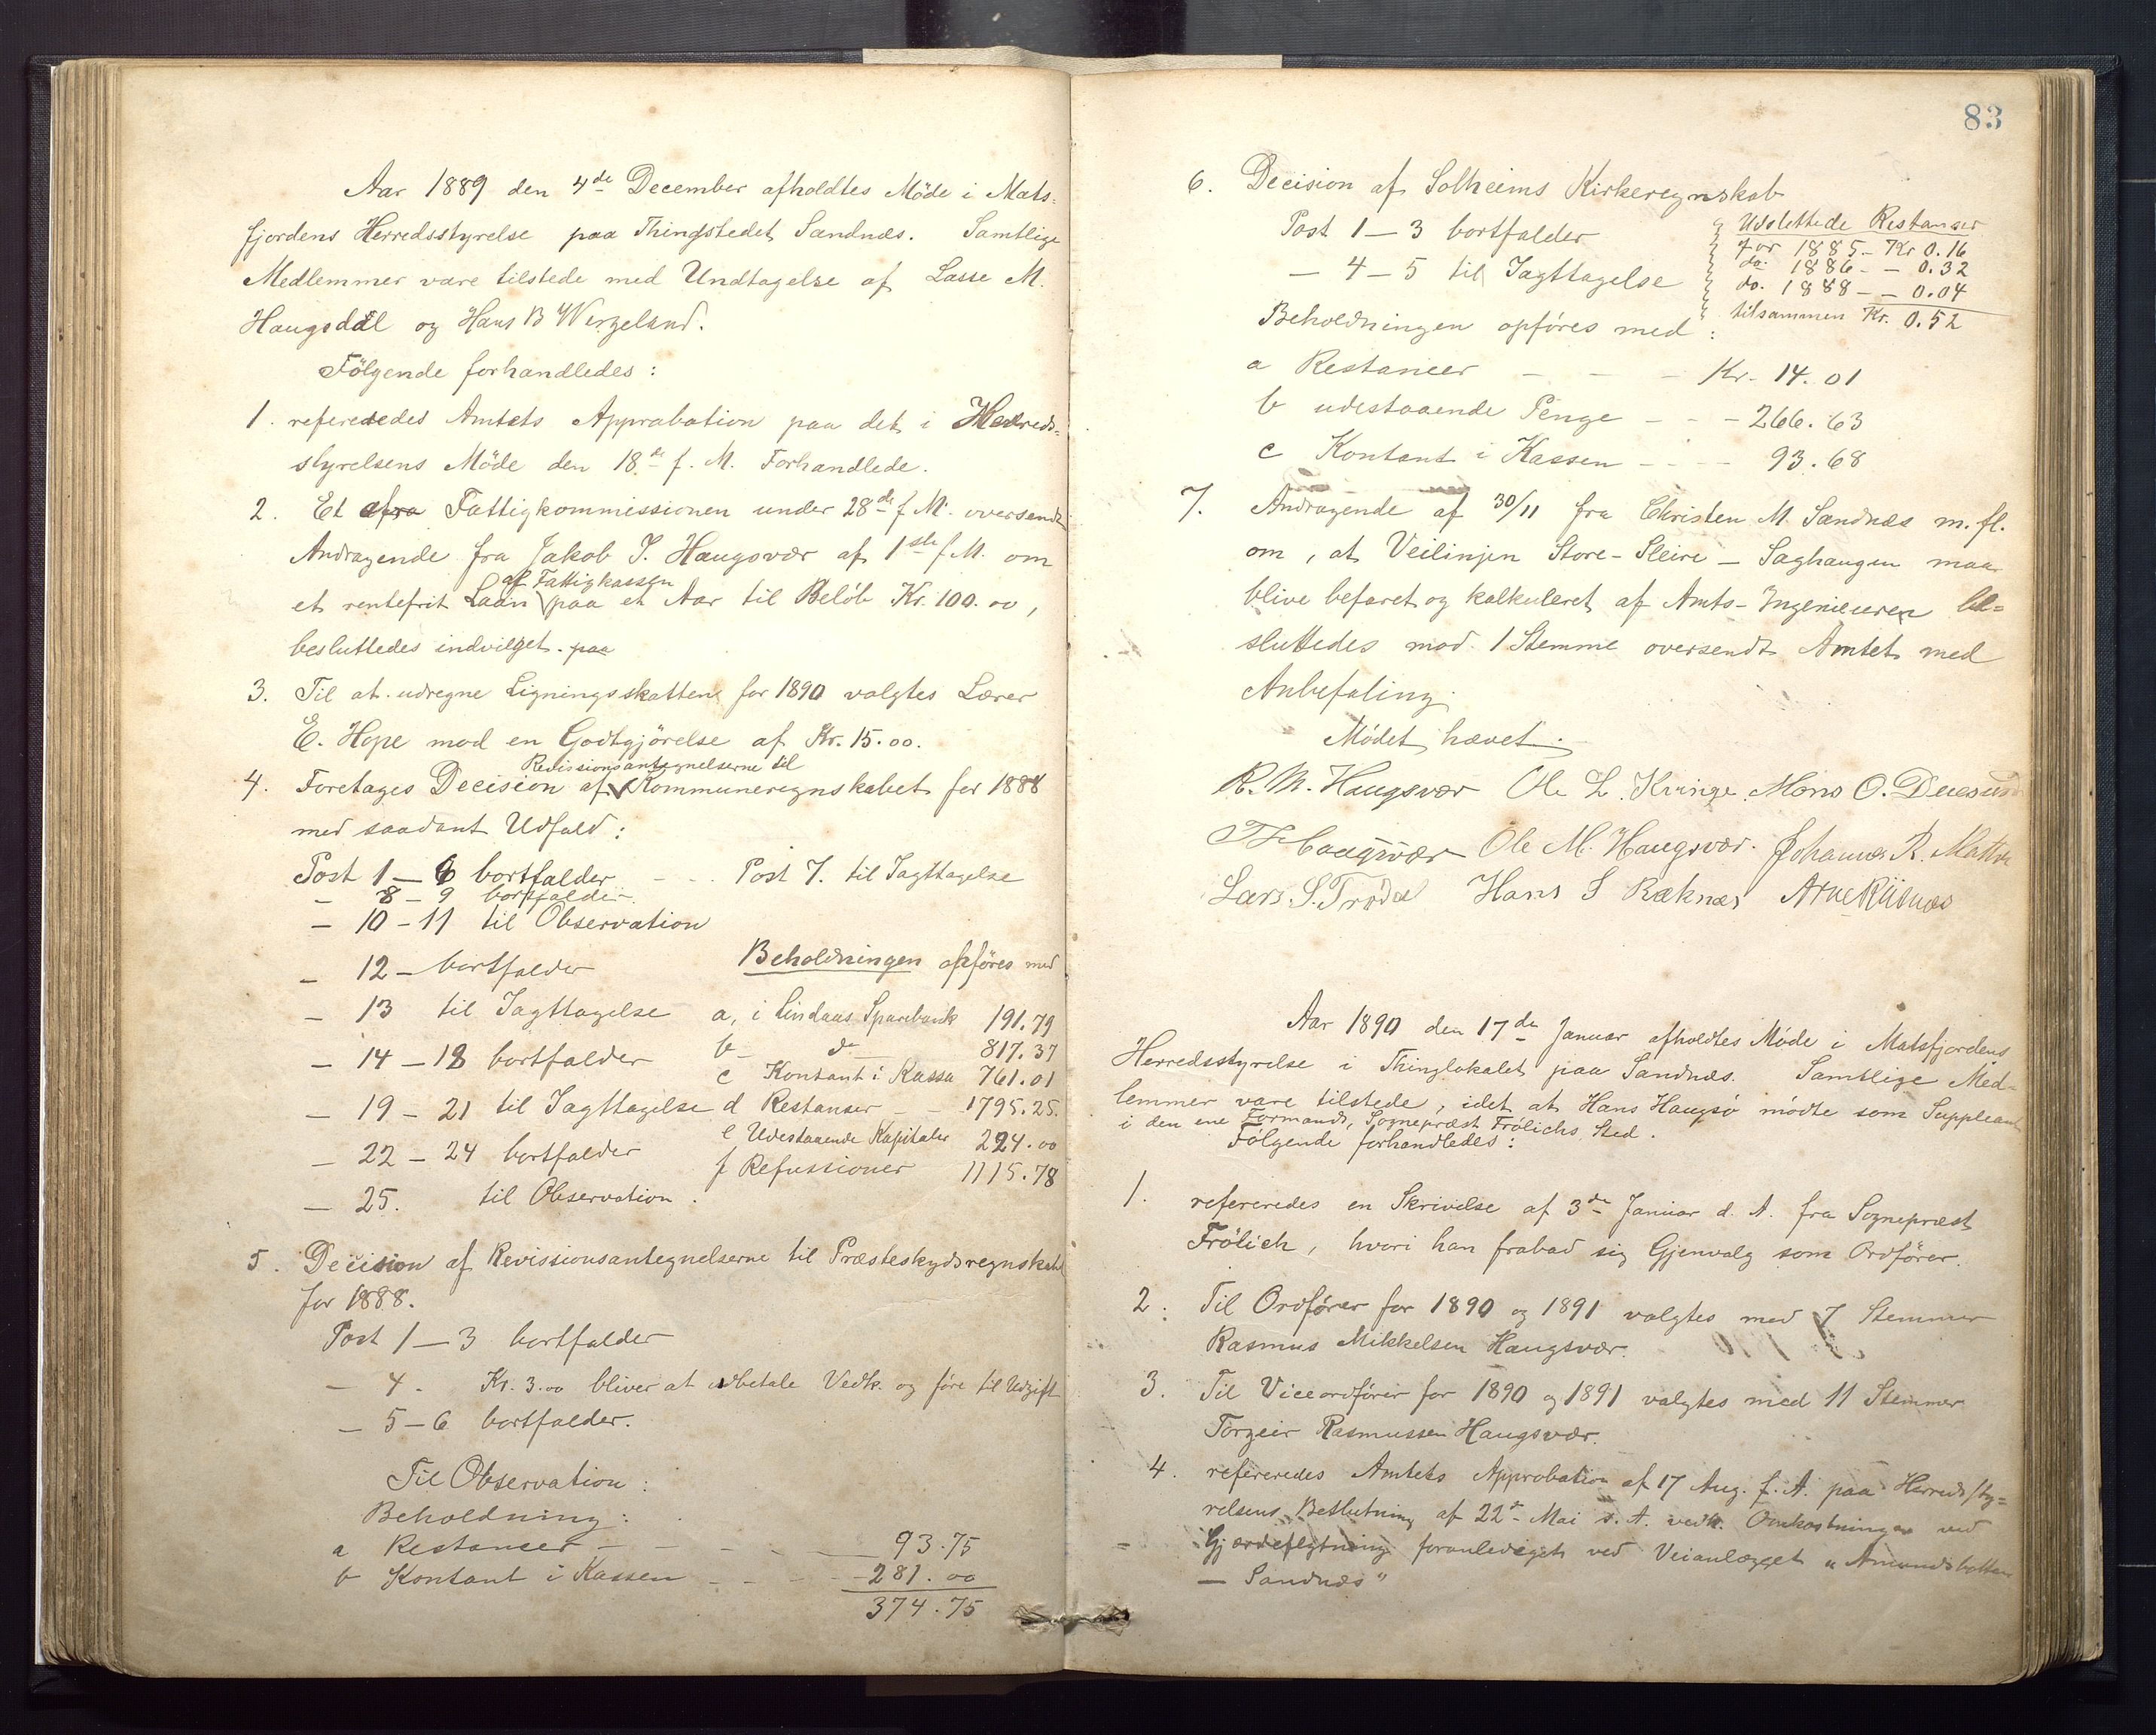 Aar 1889 den 4de December afholdtes Møde i Mats-
fjordens Herredsstyrelse paa Thingstedet Sandnæs. Samtlige
Medlemmer vare tilstede med Undtagelse af Lasse M.
Haugsdal og Hans B Wergeland.
Følgende forhandledes:
1. refereredes Amtets Approbation paa det i Herreds-
styrelsens Møde den 18de f. M. Forhandlede.
2. Et fra Fattigkommissionen under 28de f M. oversendt
Andragende fra Jakob J. Haugsvær af 1ste f M. om
af Fattigkassen
et rentefrit Laan paa et Aar til Beløb Kr. 100.00,
besluttedes indvilget. paa
3. Til at udregne Ligningsskatten for 1890 valgtes Lærer
E. Hope mod en Godtgjörelse af Kr. 15.00.
Revissionsantegnelserne til
4. Foretages Decision af Kommuneregnskabet for 1888
med saadant Udfald:
Post 1–6 bortfalder – – Post 7. til Iagttagelse
– 8–9 bortfalder
– 10–11 til Observation
– 12 – bortfalder Beholdningen opføres med
– 13 til Iagttagelse a, i Lindaas Sparebank 191.79
– 14–18 bortfalder b – do – 817.37
c Kontant i Kassa 761.01
– 19–21 til Iagttagelse d Restanser – – 1795.25.
– 22–24 bortfalder e Udestaaende Kapitaler 224.00
– 25. til Observation. f Refussioner 1115.78
5. Decision af Revissionsantegnelserne til Præsteskydsregnskabet
for 1888.
Post 1–3 bortfalder
– 4. Kr. 3.00 bliver at udbetale Vedk. og føre til Udgift
– 5–6 bortfalder.
Til Observation:
Beholdning:
a Restanser – – – – 93.75
b Kontant i Kassen – – – 281.00
374.75
83
6. Decision af Solheims Kirkeregnskab
Post 1–3 bortfalder
– 4–5 til Iagttagelse
Udslettede Restanser
for 1885 – Kr 0.16
do. 1886 – – 0.32
do. 1888 – – 0.04
tilsammen Kr. 0.52
Beholdningen opføres med:
a Restancer – – – Kr. 14.01
b udestaaende Penge – – – 266.63
c Kontant i Kassen – – – 93.68
7. Andragende af 30/11 fra Christen M. Sandnæs m. fl.
om, at Veilinjen Store-Sleire – Saghaugen maa
blive befaret og kalkuleret af Amts-Ingeniøren be-
sluttedes mod 1 Stemme oversendt Amtet med
Anbefaling.
Mødet hævet.
R. M. Haugsvær Ole L. Kringe Mons O.
T Haugsvær Ole M. Haugsvær. Johannes R. Matre
Lars. S. Hans S Ræknæs Arne Riisnæs
Aar 1890 den 17de Januar afholdtes Møde i Matsfjordens
Herredsstyrelse i Thinglokalet paa Sandnæs. Samtlige Med-
lemmer vare tilstede, idet at Hans Haugsø mødte som Suppleant
i den ene Formands, Sognepræst Frölichs Sted.
Følgende forhandledes:
1. refereredes en Skrivelse af 3de Januar d. A. fra Sognepræst
Frölich, hvori han frabad sig Gjenvalg som Ordfører.
2. Til Ordfører for 1890 og 1891 valgtes med 7 Stemmer
Rasmus Mikkelsen Haugsvær.
3. Til Viceordfører for 1890 og 1891 valgtes med 11 Stemmer
Torgeir Rasmussen Haugsvær.
4. refereredes Amtets Approbation af 17 Aug. f. A. paa Herredssty-
relsens Beslutning af 22de Mai s. A. vedk. Omkostninger ved
Gjærdeflytning foranlediget ved Veianlægget "Amundsbotten
– Sandnæs"